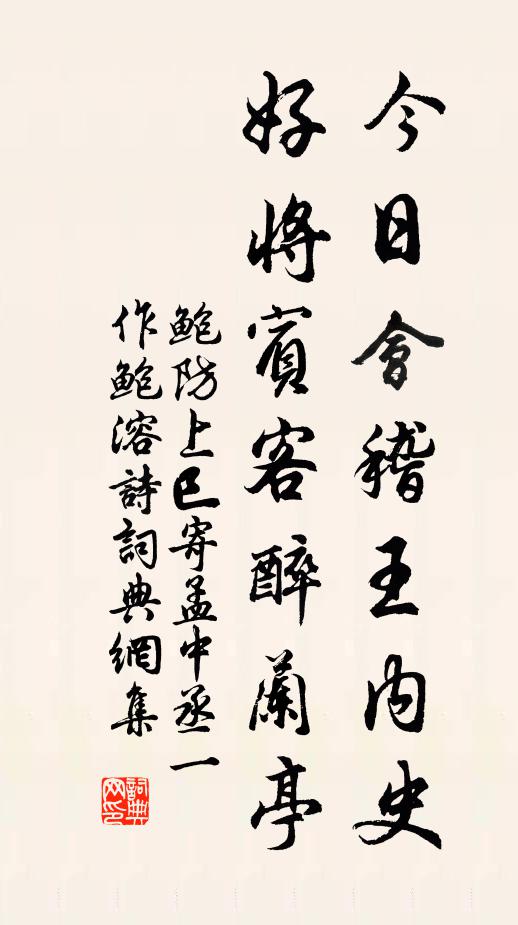 今日會稽王内史
好將賓客醉蘭亭
鮑防上巳寄孟中丞一
作鮑溶詩詞典網集
詞典
网印